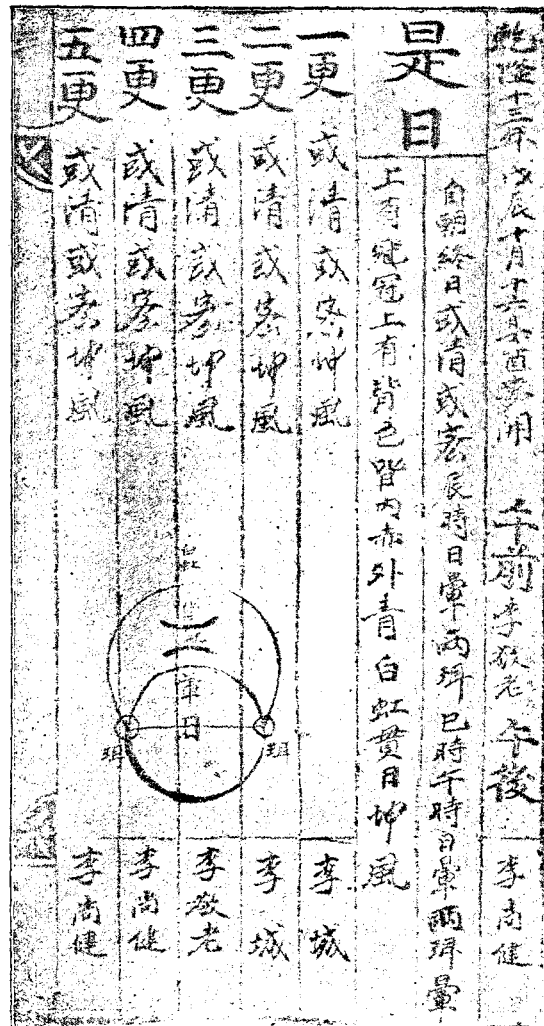 乾隆十三年戊辰十月十六日 午前 李敬老 午後 李尚健
是日
自朝終日或清或密辰時日暈兩珥巳時午時日暈兩珥暈
上有冠冠上有背色背內赤外青白虹貫日坤風
一更 或清或密坤風 李城
二更 或清或密坤風 李城
三更 或清或密坤風 李敬老
四更 或清或密坤風 李尚健
五更 或清或密坤風 李尚健
白虹
暈
日
珥
珥